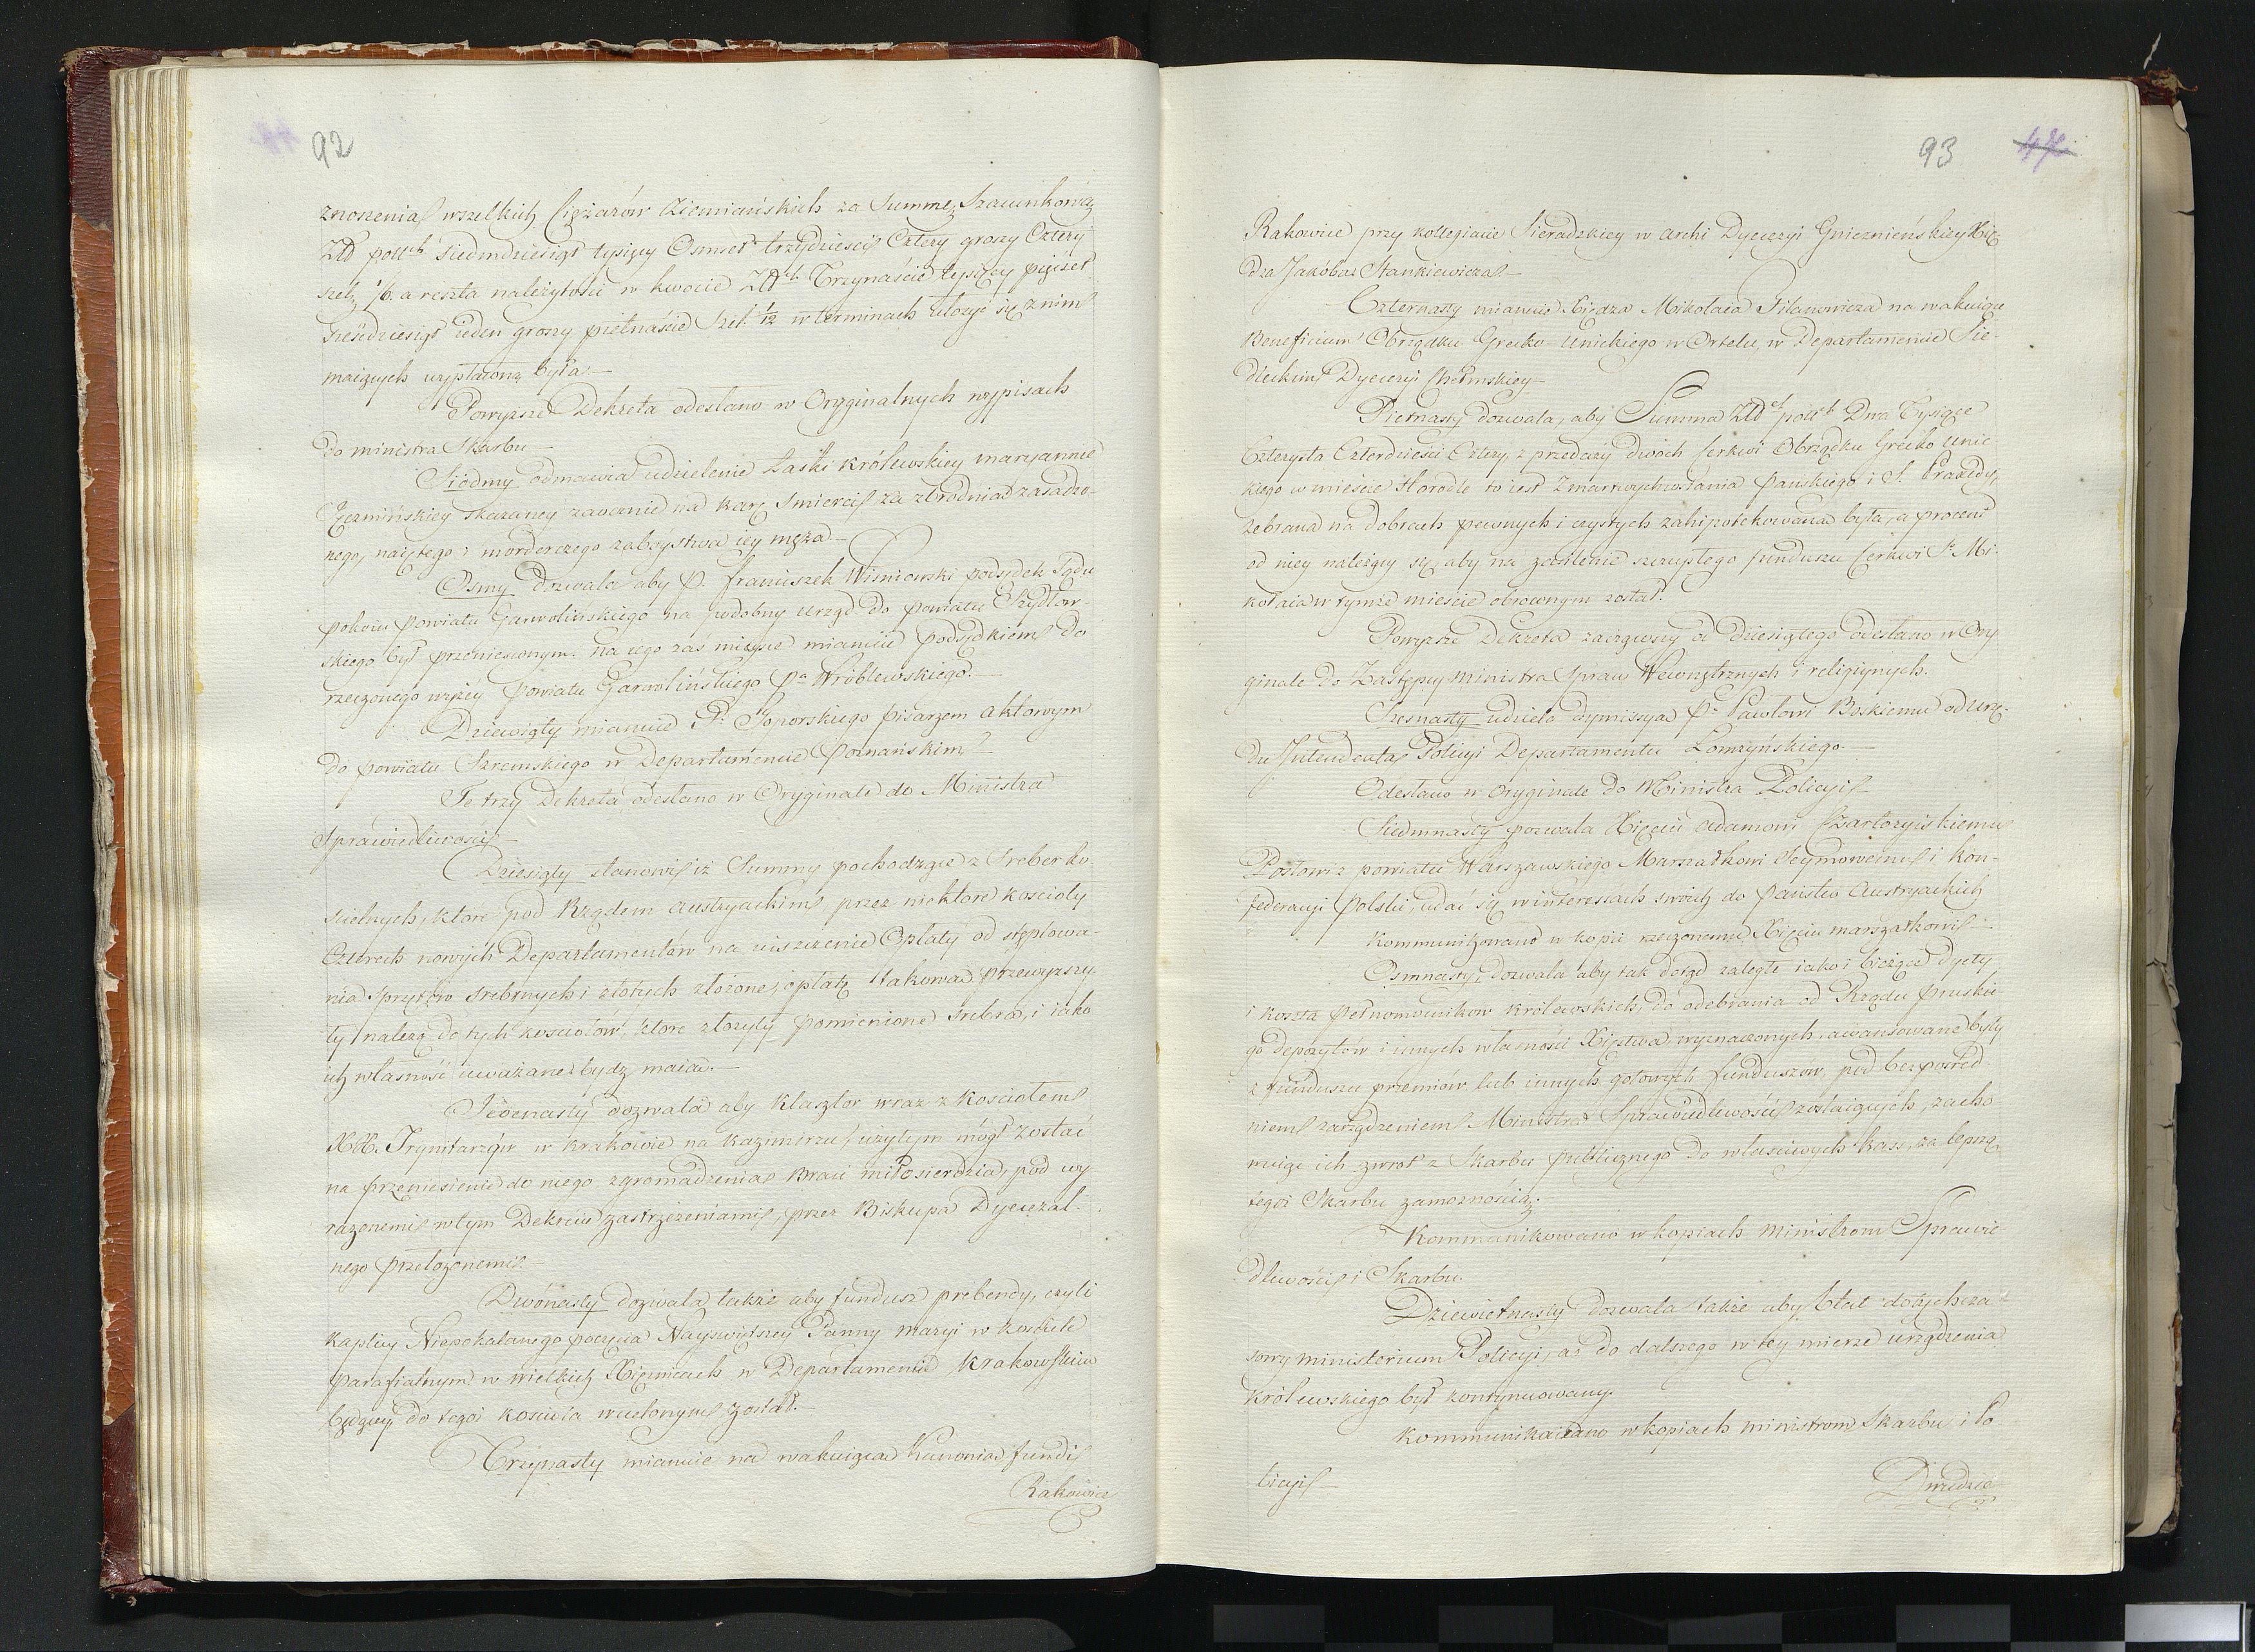 92
znoszenia wszelkich Ciężarów Ziemiańskich za Summę Szacunkową
Złł pol:ch siedmdziesiąt tysięcy Osmset trzydzieści Cztery groszy Cztery
szelz 1/6. a reszta należytości w kwocie Złł:ch Trzynaście tysięcy pięćset
sześćdziesiąt ieden groszy piętnaście szel: 1/12 w terminach ułożyć się z nim
maiących wypłaconą była.—
Powyższe Dekreta odesłano w Oryginalnych wypisach
do ministra Skarbu—
Siódmy odmawia udzielenie Łaski Królewskiey maryannie
skazaney zaocznie na karę Smierci za zbrodnią zasadzo-
nego, naiętego i morderczego zabóystwa iey męża.—
Osmy dozwala aby P. Franciszek Wiśniowski podsędek Sądu
pokoiu powiatu Garwolińskiego na podobny urząd do powiatu Szydłow-
skiego był przeniesionym. na iego zaś mieysce mianuie podsędkiem do
rzeczonego wyżéy powiatu Garwolińskiego Pa Wróblewskiego.—
Dziewiąty mianuie P. Sonorskiego pisarzem aktowym
do powiatu Szremskiego w Departamencie Poznańskim—
Te trzy Dekreta odesłano w Oryginale do Ministra
Sprawiedliwości—
Dziesiąty stanowi iż Summy pochodzące z Sreber ko-
scielnych, które pod Rządem austryackim, przez niektóre kościoły
Czterech nowych Departamentów na uiszczenie Opłaty od stęplowa-
nia sprzętów srebrnych i złotych złożone, opłatę takową przewyższy-
ły należą do tych kościołów, które złożyły pomienione srebra, i iako
ich własność uważane bydź maią.—
Jedenasty dozwala aby klasztor wraz z kościołem
XX. Trynitarzów w krakowie na kazimierzu, użytym mógł zostać
na przeniesienie do niego zgromadzenia Braci miłosierdzia, pod wy-
rażonemi w tym Dekrecie zastrzeżeniami, przez Biskupa Dyecezal-
nego przełożonemi.—
Dwónasty dozwala także aby fundusz prebendy, czyli
kaplicy Niepokalanego poczęcia Nayświętszey Panny maryi w kościele
parafialnym w wielkich Xiężnicach w Departamencie krakowskim
będącey do tegoż kościoła wcielonym został.—
Trzynasty mianuie na wakuiącą Kanonią fundi
Rakowice
93 47
Rakowice przy kollegiacie Sieradzkiey w archi Dyecezyi Gnieznieńskiey Xię-
dza Jakóba Stankiewicza.—
Czternasty mianuie Xiędza Mikołaia Filanowicza na wakuiące
Beneficium Obrządku Grecko-unickiego w Ortelu, w Departamencie Sie-
dleckim Dyecezyi Chełmskiey—
Piętnasty dozwala, aby Summa Złł:ch pol:ch Dwa Tysiące
Czterysta Czterdzieści Cztery, z przedaży dwóch Cerkwi Obrządku Grecko unic-
kiego w mieście Horodle to iest Zmartwychwstania Pańskiego i S. Praxedy,
zebrana na dobrach pewnych i czystych zahipotekowana była, a procent
od niey należący się, aby na zasilenie szczupłego funduszu Cerkwi S. Mi-
kołaia w tymże mieście obróconym został.
Powyższe Dekreta zacząwszy od dziesiątego odesłano w Ory-
ginale do Zastępcy ministra Spraw Wewnętrznych i religiynych.
Szesnasty udziela dymissyą Pu Pawłowi Boskiemu od urzę-
du Intendenta Policyi Departamentu Łomżyńskiego.—
Odesłano w Oryginale do Ministra Policyi—
Siedmnasty pozwala Xięciu adamowi Czartoryiskiemu
Posłowi z powiatu Warszawskiego Marszałkowi Seymowemu i kon-
federacyi Polski, udać się w interessach swoich do Państw austryackich
kommunikowano w kopii rzeczonemu Xięciu marszałkowi—
Osmnasty, dozwala aby tak dotąd zaległe iako i bieżące dyety
i koszta pełnomocników królewskich, do odebrania od Rządu pruskie-
go depozytów i innych własności Xięstwa, wyznaczonych, awansowane były
z funduszu premiów lub innych gotowych funduszów, pod bezpośred-
niem zarządzeniem Ministra Sprawiedliwości zostaiących, zacho-
wuiąc ich zwrot z Skarbu publicznego do właściwych kass, za lepszą
tegoż Skarbu zamożnością.—
Kommunikowano w kopiach ministrom Sprawie-
dliwości i Skarbu.
Dziewiętnasty dozwala także aby Etat dotychcza-
sowy ministerium Policyi, aż do dalszego w tey mierze urządzenia
królewskiego był kontynuowany.
Kommunikowano w kopiach ministrom Skarbu i Po-
licyi—
Dwudzie-